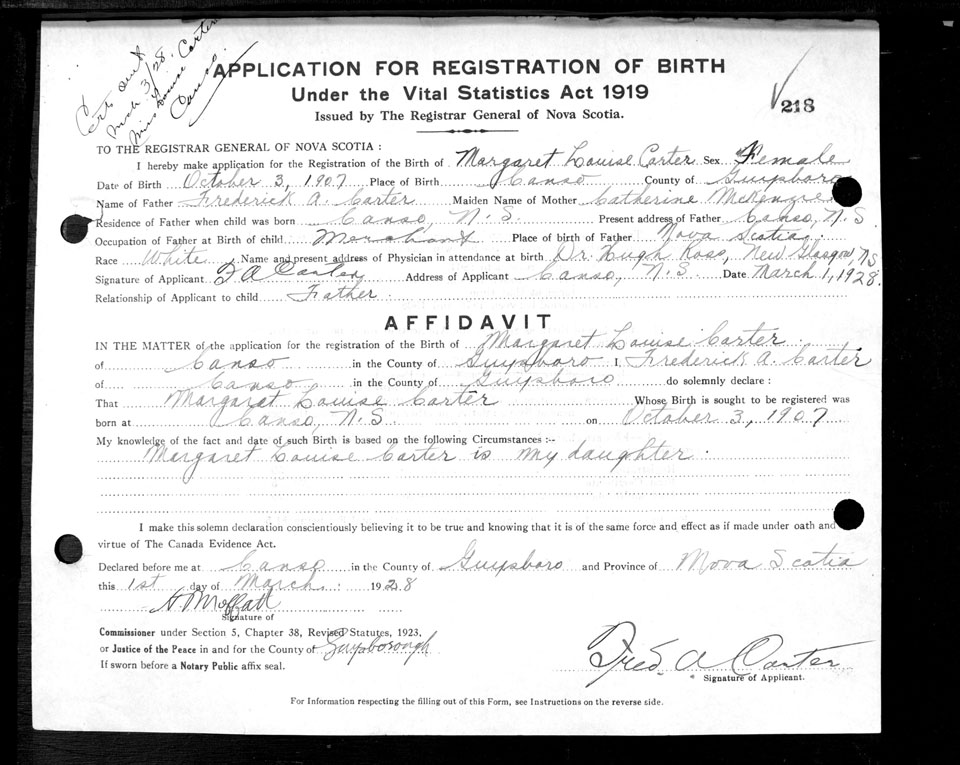 Cert sent
Mch 3/28
Miss Louise Carter
Canso
APPLICATION FOR REGISTRATION OF BIRTH
Under the Vital Statistics Act 1919
Issued by The Registrar General of Nova Scotia.
218
TO THE REGISTRAR GENERAL OF NOVA SCOTIA :
I hereby make application for the Registration of the Birth of Margaret Louise Carter Sex Female
Date of Birth October 3, 1907 Place of Birth Canso County of Guysboro
Name of Father Frederick A. Carter Maiden Name of Mother Catherine McKenzie
Residence of Father when child was born Canso, N.S. Present address of Father Canso, N.S
Occupation of Father at Birth of child Merchant Place of birth of Father Nova Scotia.
Race White Name and present address of Physician in attendance at birth Dr. Hugh Ross, New Glasgow NS
Signature of Applicant F A Carter Address of Applicant Canso, N.S Date March 1, 1928.
Relationship of Applicant to child Father
AFFIDAVIT
IN THE MATTER of the application for the registration of the Birth of Margaret Louise Carter
of Canso in the County of Guysboro I, Frederick A. Carter
of Canso in the County of Guysboro do solemnly declare :
That Margaret Louise Carter Whose Birth is sought to be registered was
born at Canso, N.S. on October 3, 1907
My knowledge of the fact and date of such Birth is based on the following Circumstances :--
Margaret Louise Carter is my daughter.
I make this solemn declaration conscientiously believing it to be true and knowing that it is of the same force and effect as if made under oath and
virtue of The Canada Evidence Act.
Declared before me at Canso in the County of Guysboro and Province of Nova Scotia
this 1st day of March 1928
H Moffatt
Signature of
Commissioner under Section 5, Chapter 38, Revised Statutes, 1923,
or Justice of the Peace in and for the County of Guysborough
If sworn before a Notary Public affix seal.
Fred. A Carter
Signature of Applicant.
For Information respecting the filling out of this Form, see Instructions on the reverse side.